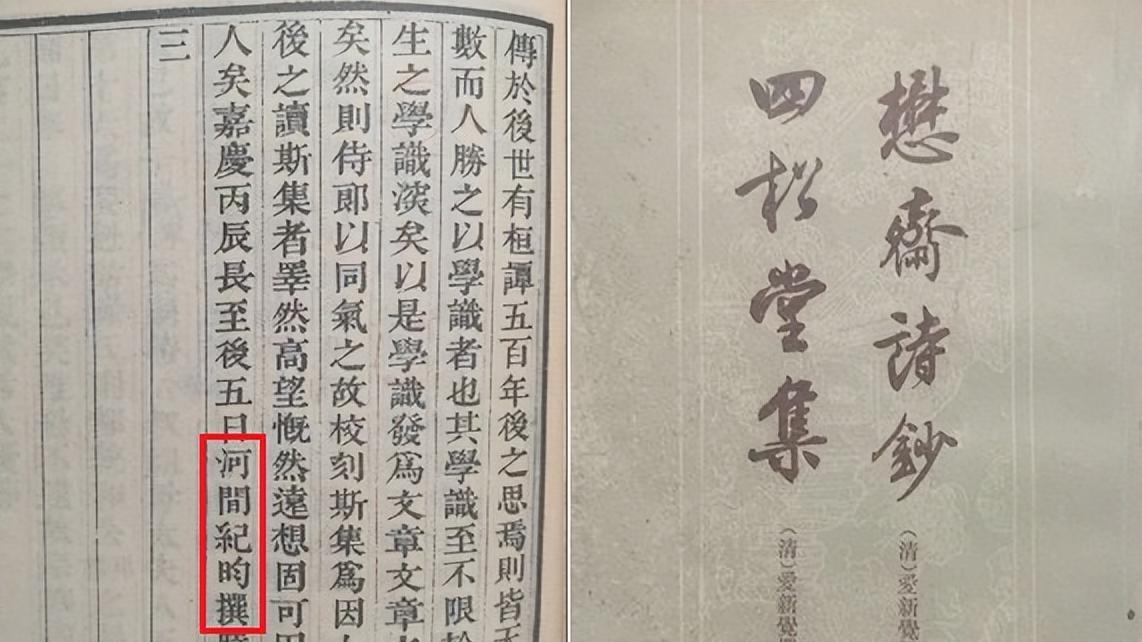 傳於後世有桓譚五百年後之思焉則皆
數而人勝之以學識者也其學識至不限
生之學識淡矣以是學識發爲文章文章
矣然則侍郎以同氣之故校刻斯集爲因
後之讀斯集者睪然高望慨然遠想固可
人矣嘉慶丙辰長至後五日河間紀昀撰
三
懋齋詩鈔
(清)愛新覺
四松堂集
(清)愛新覺